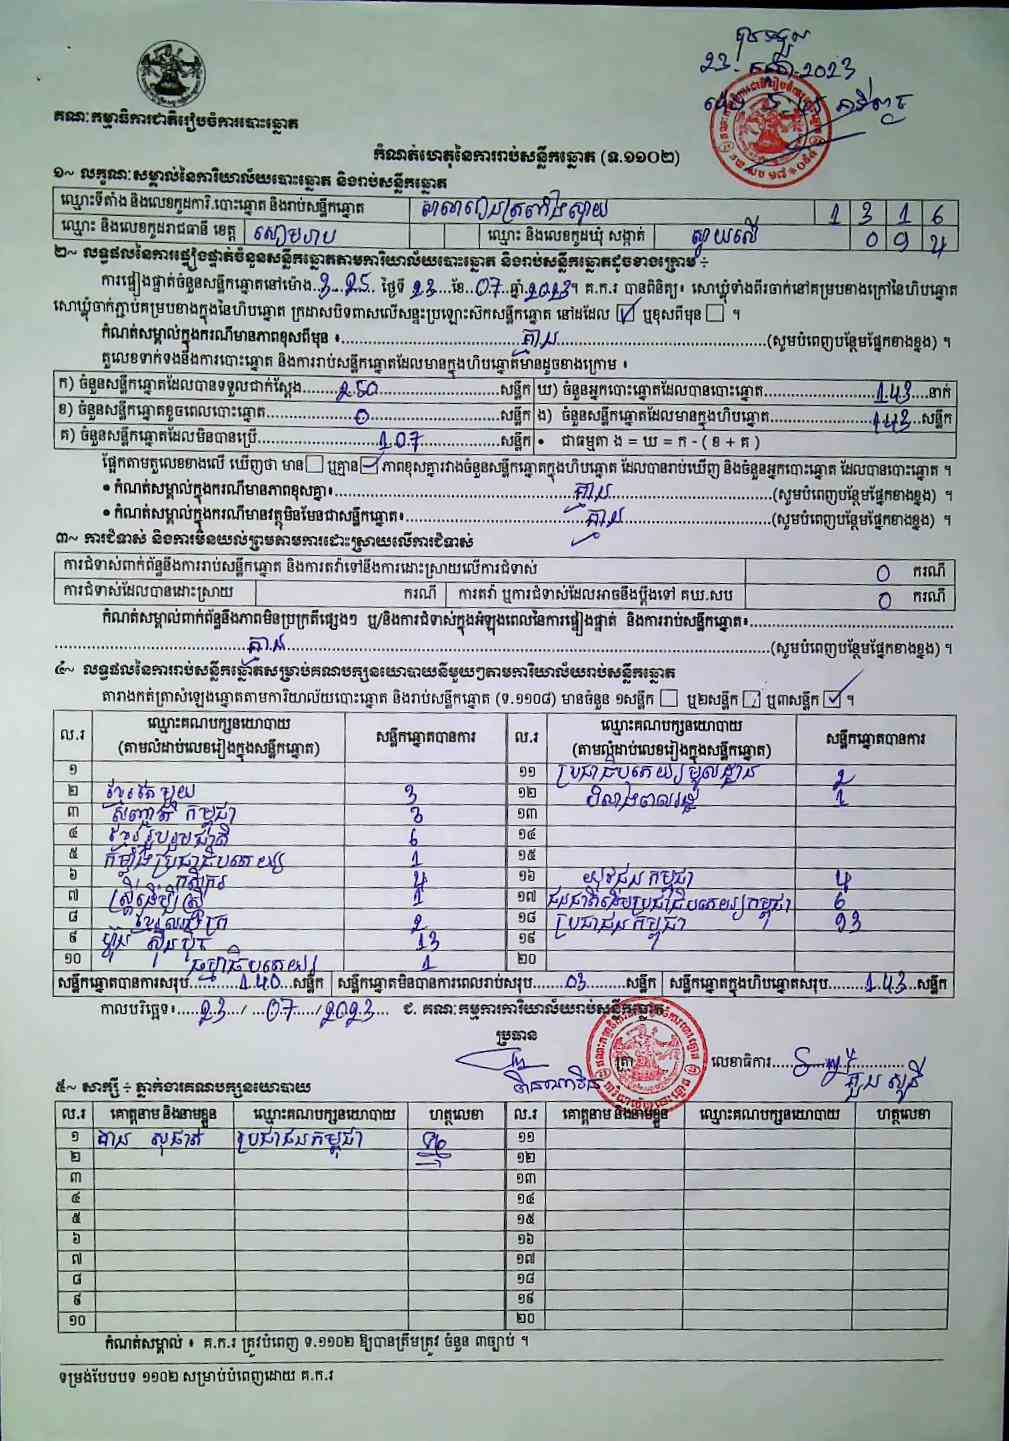 បានទទួល
23. កក្កដា. 2023
គណៈកម្មាធិការជាតិរៀបចំការបោះឆ្នោត
កំណត់ហេតុនៃការរាប់សន្លឹកឆ្នោត (ទ.១១០២)
១~ លក្ខណៈសម្គាល់នៃការិយាល័យបោះឆ្នោត និងរាប់សន្លឹកឆ្នោត
ឈ្មោះទីតាំង និងលេខកូដការិ.បោះឆ្នោត និងរាប់សន្លឹកឆ្នោត សាលារៀនត្រពាំងស្វាយ 1 3 1 6
ឈ្មោះ និងលេខកូដរាជធានី ខេត្ត សៀមរាប ឈ្មោះ និងលេខកូដឃុំ សង្កាត់ ស្វាយលើ 0 9 4
២~ លទ្ធផលនៃការផ្ទៀងផ្ទាត់ចំនួនសន្លឹកឆ្នោតតាមការិយាល័យបោះឆ្នោត និងរាប់សន្លឹកឆ្នោតដូចខាងក្រោម ÷
ការផ្ទៀងផ្ទាត់ចំនួនសន្លឹកឆ្នោតនៅម៉ោង 3:25 ថ្ងៃទី 23 ខែ 07 ឆ្នាំ 2023 ។ គ.ក.រ បានពិនិត្យ៖ សោឃ្លុំទាំងពីរចាក់នៅគម្របខាងក្រៅនៃហិបឆ្នោត
សោឃ្លុំចាក់ភ្ជាប់គម្របខាងក្នុងនៃហិបឆ្នោត ក្រដាសបិទពាសលើសន្ទះប្រឡោះស៊កសន្លឹកឆ្នោត នៅដដែល ☑ ឬខុសពីមុន ☐ ។
កំណត់សម្គាល់ក្នុងករណីមានភាពខុសពីមុន ៖ គ្មាន (សូមបំពេញបន្ថែមផ្នែកខាងខ្នង) ។
តួលេខទាក់ទងនឹងការបោះឆ្នោត និងការរាប់សន្លឹកឆ្នោតដែលមានក្នុងហិបឆ្នោតមានដូចខាងក្រោម ៖
ក) ចំនួនសន្លឹកឆ្នោតដែលបានទទួលជាក់ស្តែង 250 សន្លឹក ឃ) ចំនួនអ្នកបោះឆ្នោតដែលបានបោះឆ្នោត 143 នាក់
ខ) ចំនួនសន្លឹកឆ្នោតខូចពេលបោះឆ្នោត 0 សន្លឹក ង) ចំនួនសន្លឹកឆ្នោតដែលមានក្នុងហិបឆ្នោត 143 សន្លឹក
គ) ចំនួនសន្លឹកឆ្នោតដែលមិនបានប្រើ 107 សន្លឹក • ជាធម្មតា ង = ឃ = ក - ( ខ + គ )
ផ្អែកតាមតួលេខខាងលើ ឃើញថា មាន ☐ ឬគ្មាន ☑ ភាពខុសគ្នារវាងចំនួនសន្លឹកឆ្នោតក្នុងហិបឆ្នោត ដែលបានរាប់ឃើញ និងចំនួនអ្នកបោះឆ្នោត ដែលបានបោះឆ្នោត ។
• កំណត់សម្គាល់ក្នុងករណីមានភាពខុសគ្នា៖ គ្មាន (សូមបំពេញបន្ថែមផ្នែកខាងខ្នង) ។
• កំណត់សម្គាល់ក្នុងករណីមានវត្ថុមិនមែនជាសន្លឹកឆ្នោត៖ គ្មាន (សូមបំពេញបន្ថែមផ្នែកខាងខ្នង) ។
៣~ ការជំទាស់ និងការមិនយល់ព្រមតាមការដោះស្រាយលើការជំទាស់
ការជំទាស់ពាក់ព័ន្ធនឹងការរាប់សន្លឹកឆ្នោត និងការតវ៉ាទៅនឹងការដោះស្រាយលើការជំទាស់ 0 ករណី
ការជំទាស់ដែលបានដោះស្រាយ ករណី ការតវ៉ា ឬការជំទាស់ដែលអាចនឹងប្តឹងទៅ គឃ.សប 0 ករណី
កំណត់សម្គាល់ពាក់ព័ន្ធនឹងភាពមិនប្រក្រតីផ្សេងៗ ឬ/និងការជំទាស់ក្នុងអំឡុងពេលនៃការផ្ទៀងផ្ទាត់ និងការរាប់សន្លឹកឆ្នោត៖
គ្មាន (សូមបំពេញបន្ថែមផ្នែកខាងខ្នង) ។
៤~ លទ្ធផលនៃការរាប់សន្លឹកឆ្នោតសម្រាប់គណបក្សនយោបាយនីមួយៗតាមការិយាល័យរាប់សន្លឹកឆ្នោត
តារាងកត់ត្រាសំឡេងឆ្នោតតាមការិយាល័យបោះឆ្នោត និងរាប់សន្លឹកឆ្នោត (ទ.១១០៨) មានចំនួន ១សន្លឹក ☐ ឬ២សន្លឹក ☐ ឬ៣សន្លឹក ☑ ។
ល.រ ឈ្មោះគណបក្សនយោបាយ (តាមលំដាប់លេខរៀងក្នុងសន្លឹកឆ្នោត) សន្លឹកឆ្នោតបានការ ល.រ ឈ្មោះគណបក្សនយោបាយ (តាមលំដាប់លេខរៀងក្នុងសន្លឹកឆ្នោត) សន្លឹកឆ្នោតបានការ
១ ១១ ប្រជាធិបតេយ្យមូលដ្ឋាន 2
២ ខ្មែរតែមួយ 3 ១២ 1
៣ សញ្ជាតិ កម្ពុជា 3 ១៣
៤ ខ្មែររួបរួមជាតិ 6 ១៤
៥ កម្លាំងប្រជាធិបតេយ្យ 1 ១៥
៦ កសិករ 4 ១៦ យុវជនកម្ពុជា 4
៧ ស្ត្រីដើម្បីស្ត្រី 1 ១៧ ជនជាតិដើមប្រជាធិបតេយ្យកម្ពុជា 6
៨ 2 ១៨ ប្រជាជនកម្ពុជា 93
៩ ហ៊្វុនស៊ិនប៉ិច 13 ១៩
១០ ធម្មាធិបតេយ្យ 1 ២០
សន្លឹកឆ្នោតបានការសរុប 140 សន្លឹក សន្លឹកឆ្នោតមិនបានការពេលរាប់សរុប 03 សន្លឹក សន្លឹកឆ្នោតក្នុងហិបឆ្នោតសរុប 143 សន្លឹក
កាលបរិច្ឆេទ៖ 23 / 07 / 2023 ជ. គណៈកម្មការការិយាល័យរាប់សន្លឹកឆ្នោត
ប្រធាន
ត្រា លេខាធិការ
៥~ សាក្សី ÷ ភ្នាក់ងារគណបក្សនយោបាយ
ល.រ គោត្តនាម និងនាមខ្លួន ឈ្មោះគណបក្សនយោបាយ ហត្ថលេខា ល.រ គោត្តនាម និងនាមខ្លួន ឈ្មោះគណបក្សនយោបាយ ហត្ថលេខា
១ ប្រជាជនកម្ពុជា ១១
២ ១២
៣ ១៣
៤ ១៤
៥ ១៥
៦ ១៦
៧ ១៧
៨ ១៨
៩ ១៩
១០ ២០
កំណត់សម្គាល់ ៖ គ.ក.រ ត្រូវបំពេញ ទ.១១០២ ឱ្យបានត្រឹមត្រូវ ចំនួន ៣ច្បាប់ ។
ទម្រង់បែបបទ ១១០២ សម្រាប់បំពេញដោយ គ.ក.រ